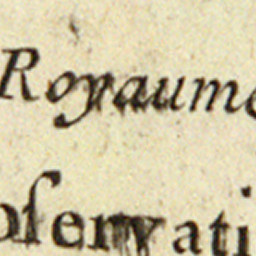 Royaume
oſervati